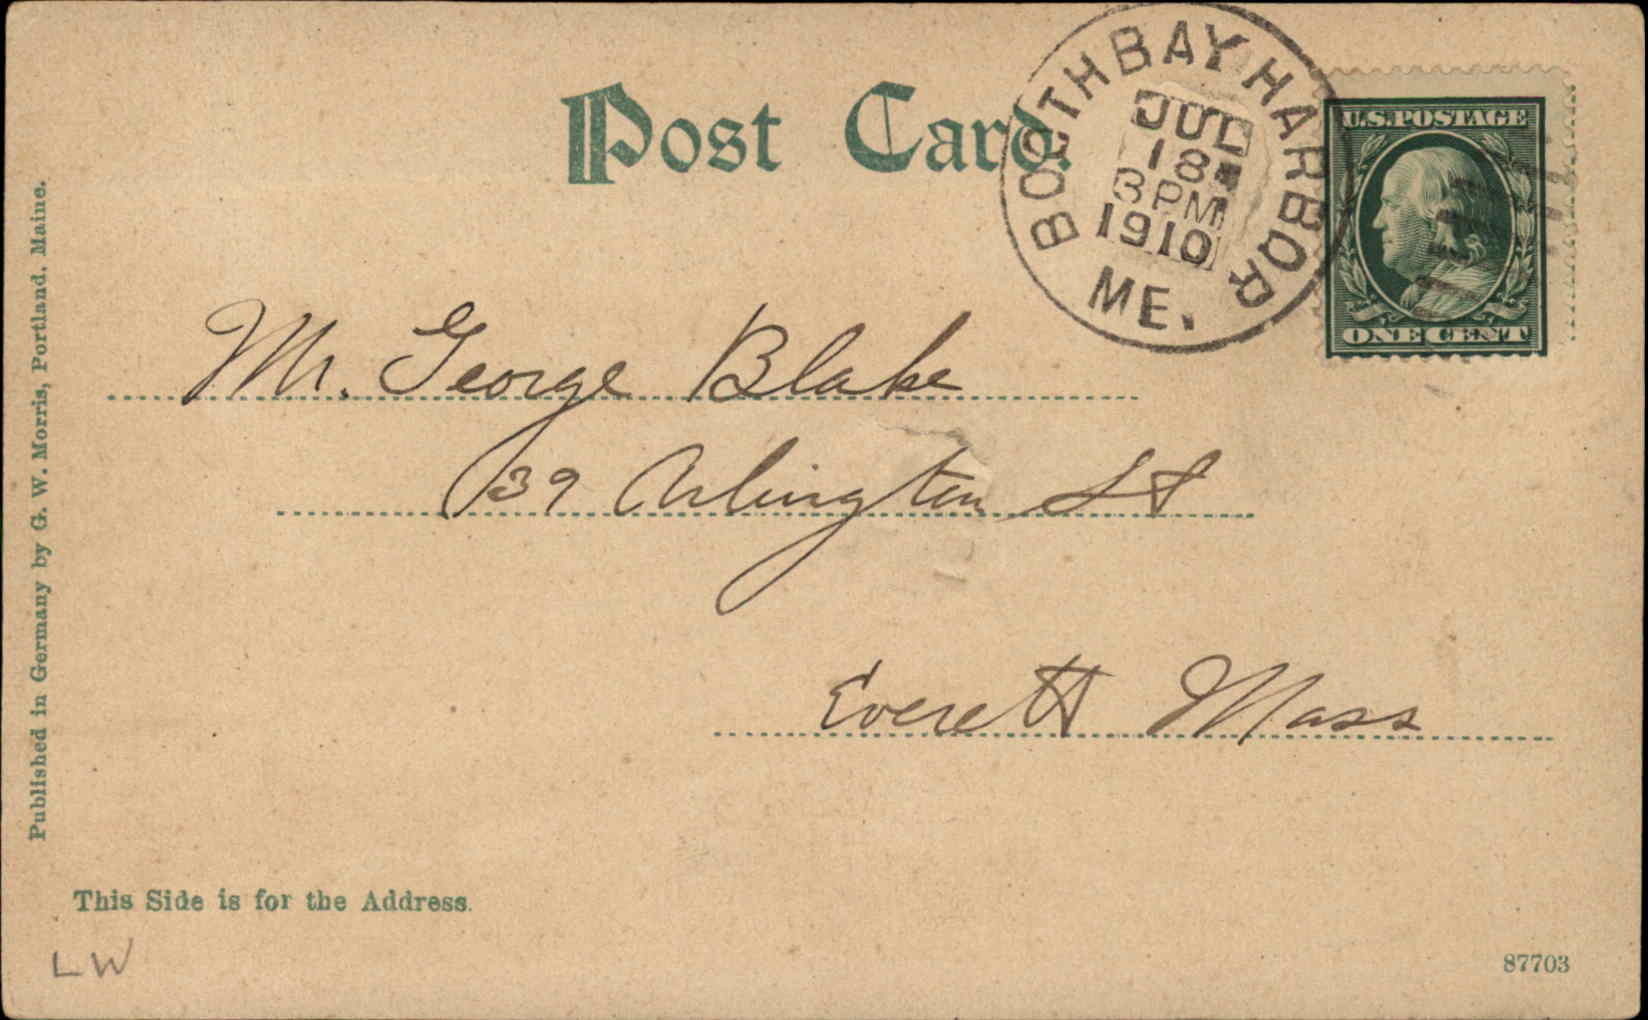 Post Card.
BOOTHBAY HARBOR
JUL
18
3 PM
1910
ME.
U.S. POSTAGE
ONE CENT
Mr. George Blake
39 Arlington St
Everett Mass
Published in Germany by G. W. Morris, Portland, Maine.
This Side is for the Address.
LW
87703